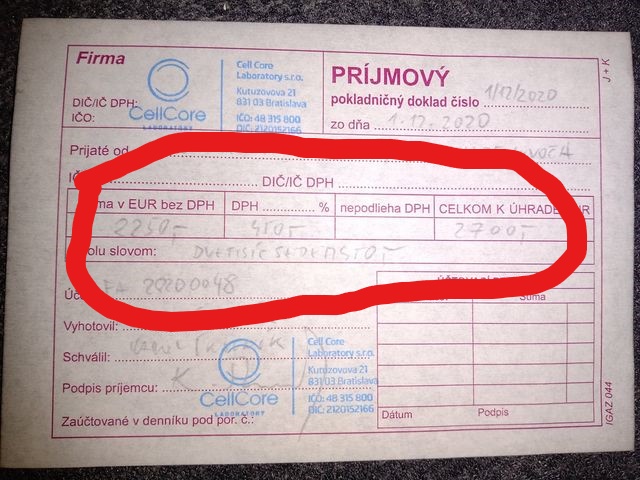 Firma
Cell Core
Laboratory s.r.o.
Kutuzovova 21
831 03 Bratislava
IČO: 48 315 800
DIČ: 2120152166
CellCore
LABORATORY
DIČ/IČ DPH:
IČO:
PRÍJMOVÝ
pokladničný doklad číslo 1/12/2020
zo dňa 1.12.2020
J + K
Prijaté od
IČ DIČ/IČ DPH
ma v EUR bez DPH DPH % nepodlieha DPH CELKOM K ÚHRADE UR
2250,- 450,- 2700,-
olu slovom: DVETISÍC SEDEMSTO,-
Úč FA 20200048
Vyhotovil:
Schválil:
Podpis príjemcu:
Cell Core
Laboratory s.r.o.
Kutuzovova 21
831 03 Bratislava
IČO: 48 315 800
DIČ: 2120152166
CellCore
LABORATORY
Zaúčtované v denníku pod por. č.:
Suma
Dátum Podpis
IGAZ 044